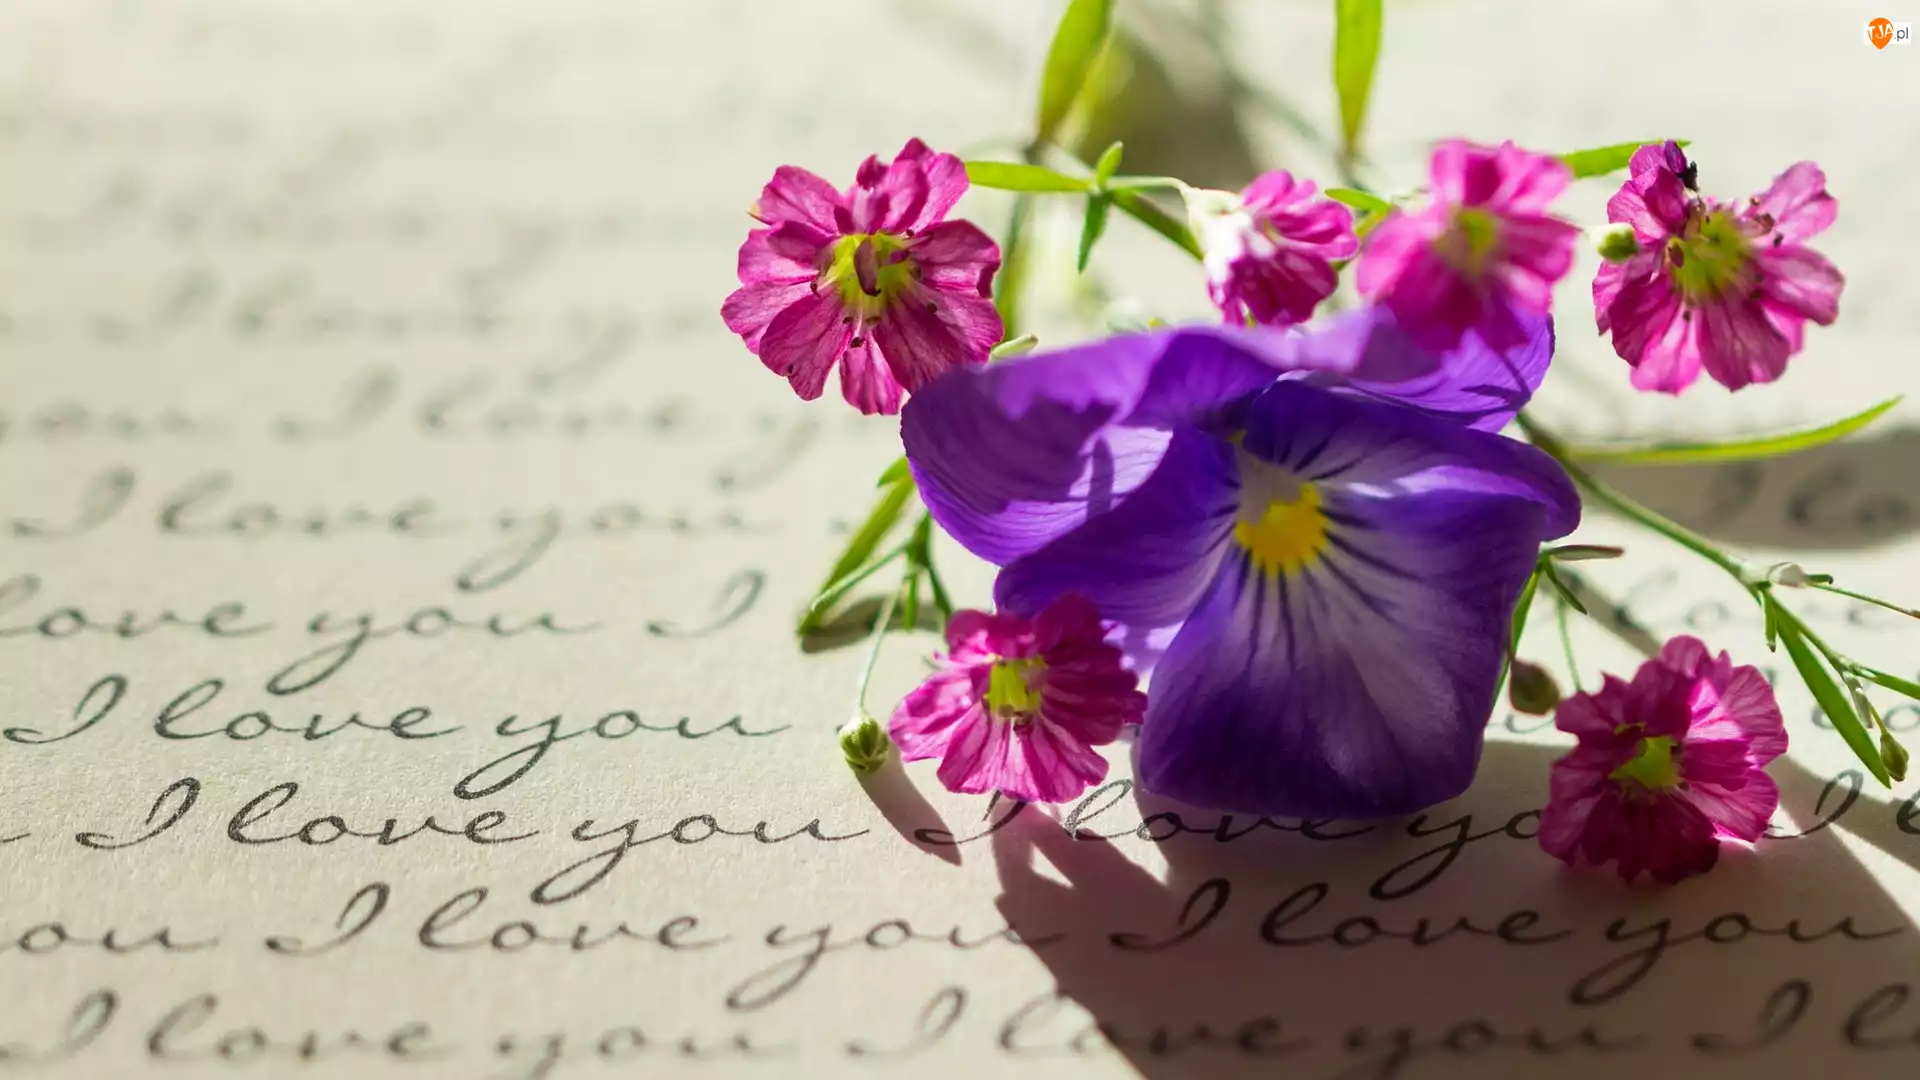 TJA.pl
I love you
I love you I lo
I love you
love you I love
I love you
I love you I love yo I l
ou I love you I love you
I love you I love you I l